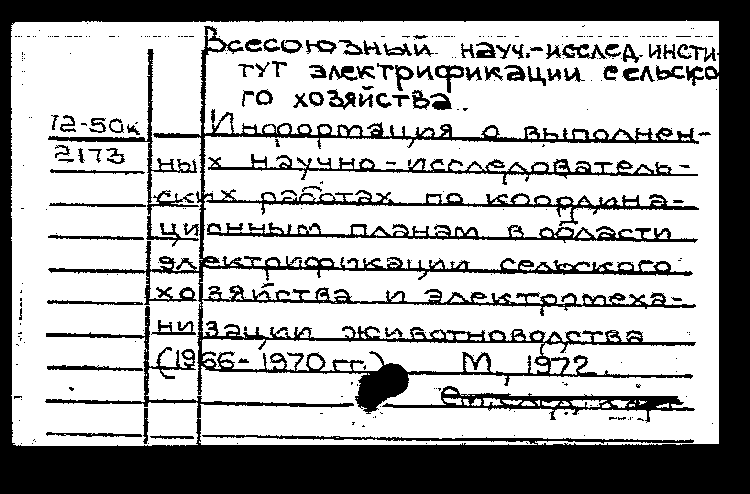 Всесоюзный науч.-исслед. инсти-
тут электрификации сельско
го хозяйства.
72-50к
Информация о выполнен-
2173
ных научно-исследователь-
ских работах по координа-
ционным планам в области
электрификации сельского
хозяйства и электромеха-
низации животноводства
(1966-1970 гг.) М, 1972.
См. след. карт.